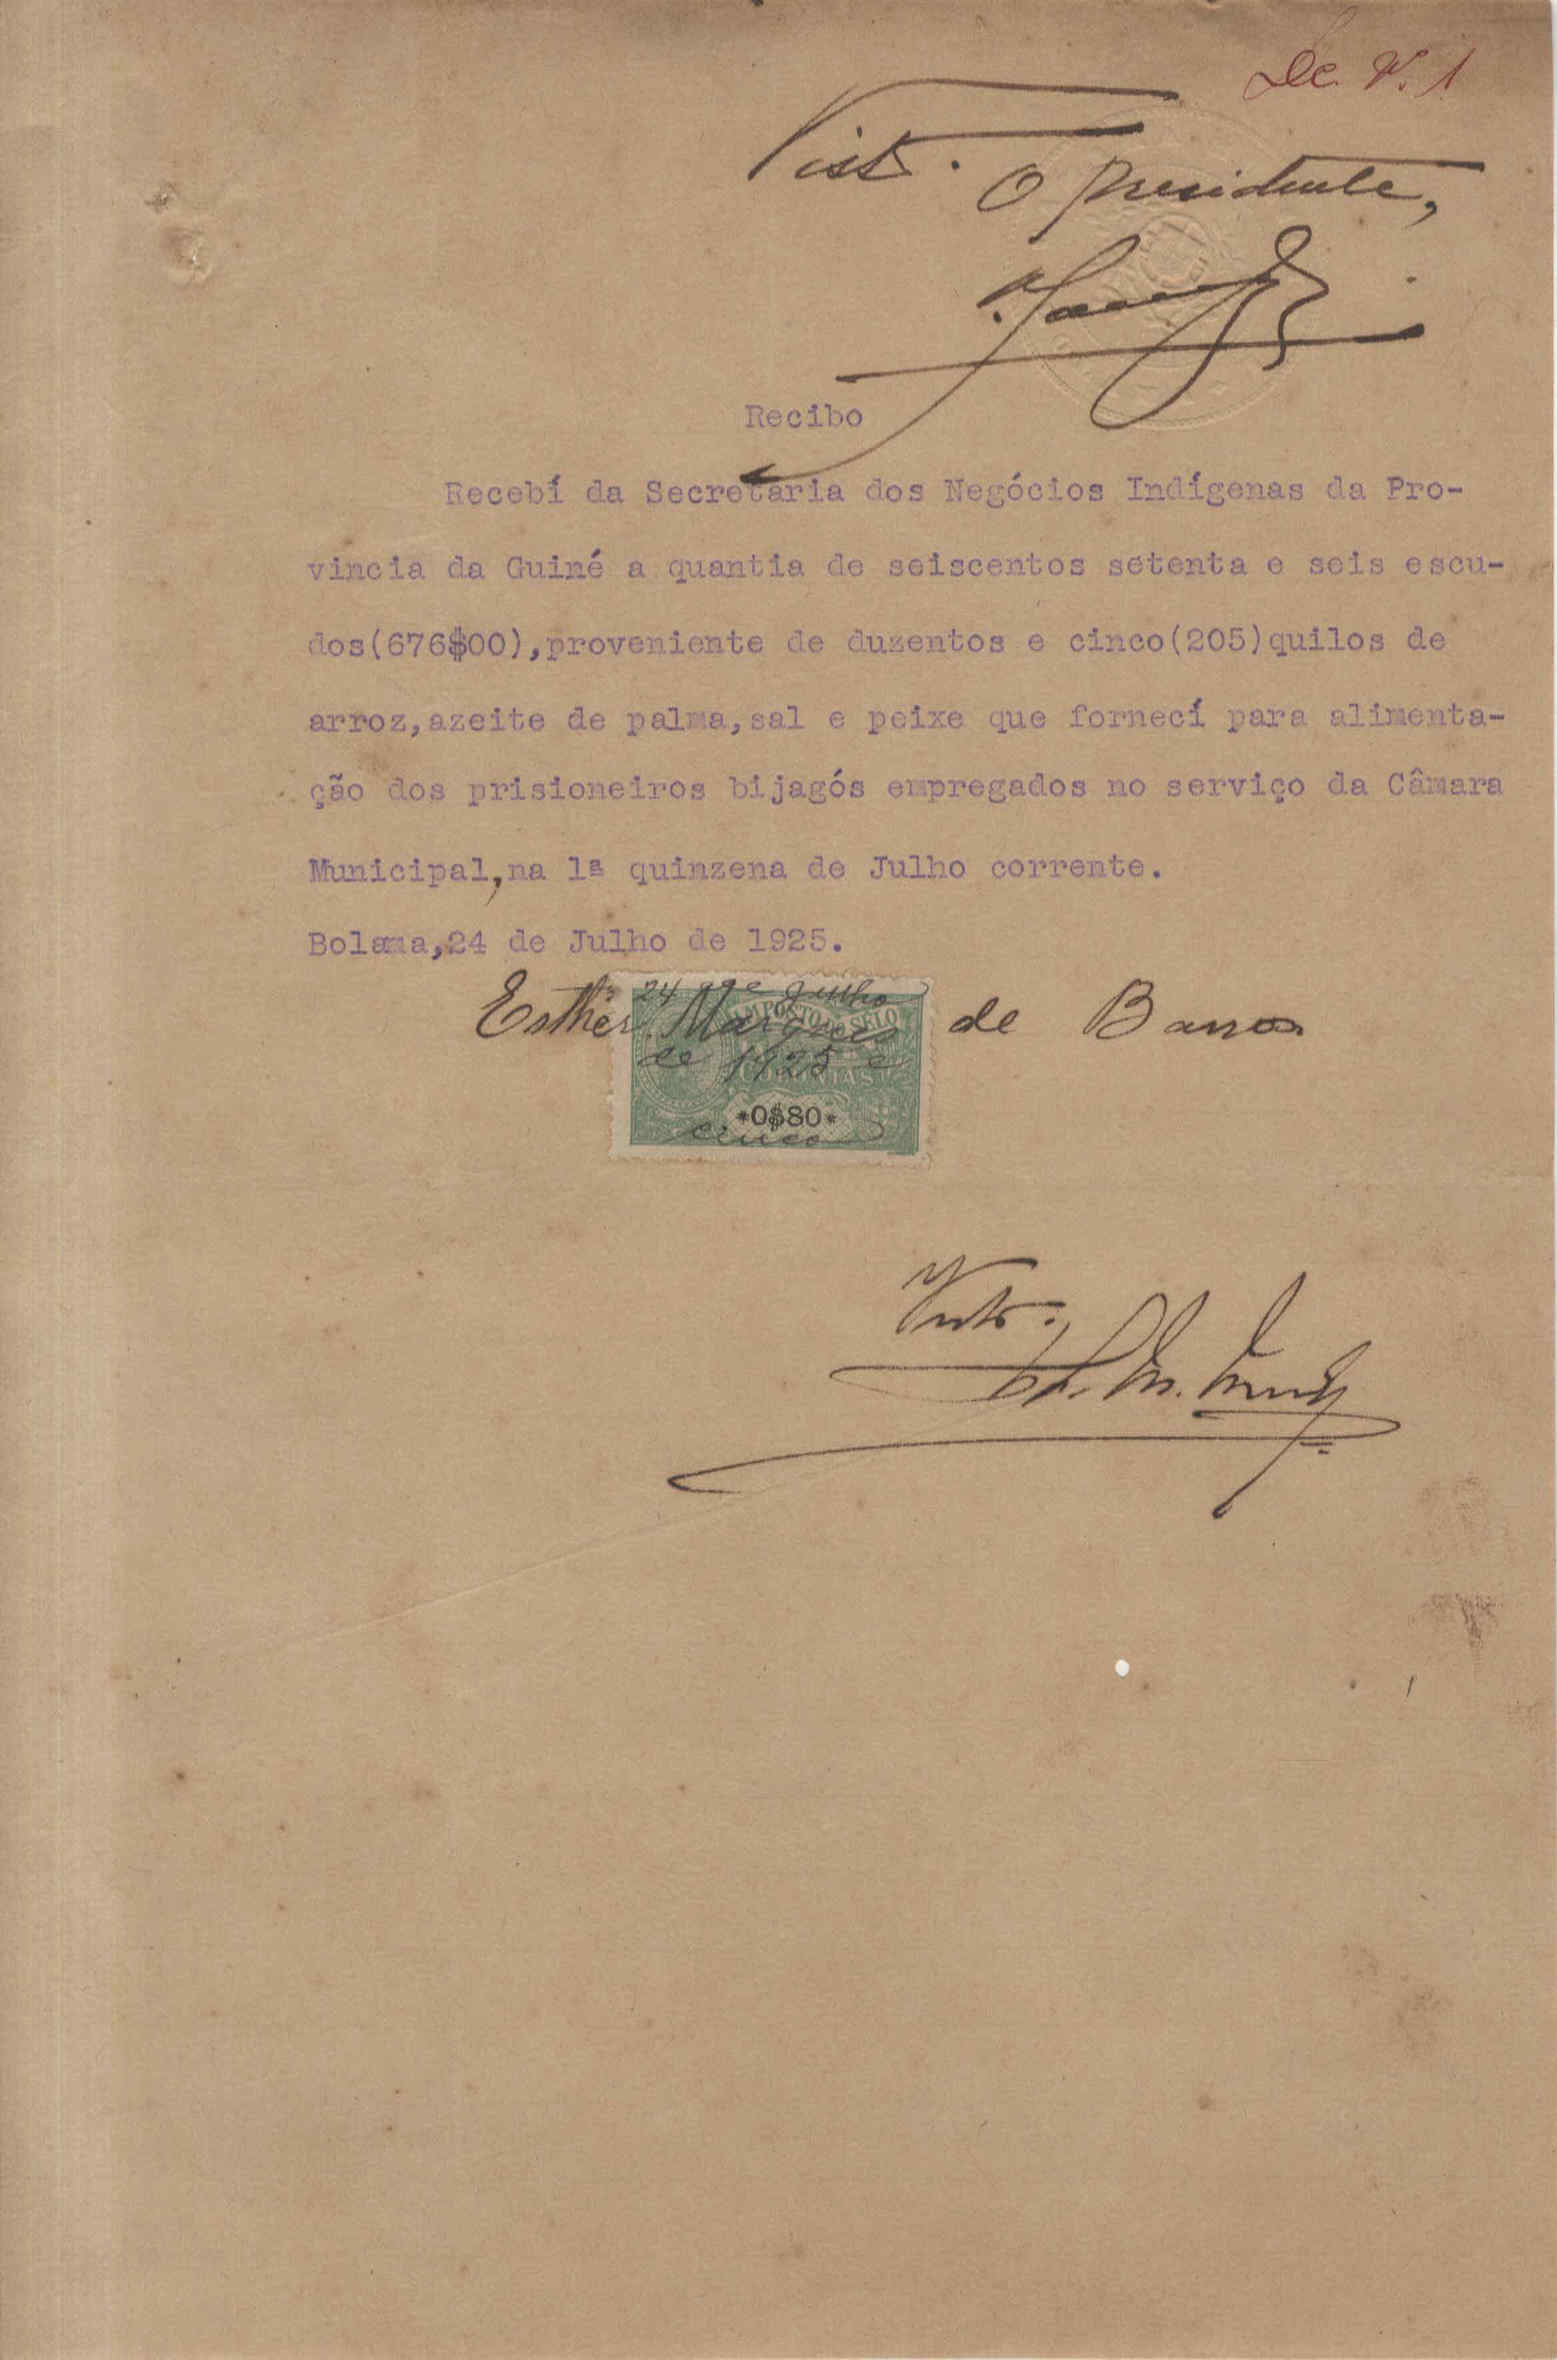 Dc. Nº. 1
Visto. O Presidente,
Recibo
Recebí da Secretaria dos Negócios Indígenas da Pro-
vincia da Guiné a quantia de seiscentos setenta e seis escu-
dos(676$00),proveniente de duzentos e cinco(205)quilos de
arroz,azeite de palma,sal e peixe que fornecí para alimenta-
ção dos prisioneiros bijagós empregados no serviço da Câmara
Municipal,na 1ª quinzena de Julho corrente.
Bolama,24 de Julho de 1925.
24 de Julho
Esther Marques de Barros
IMPOSTO DO SELO
de 1925 e
COLONIAS
*0$80*
cinco
Visto.